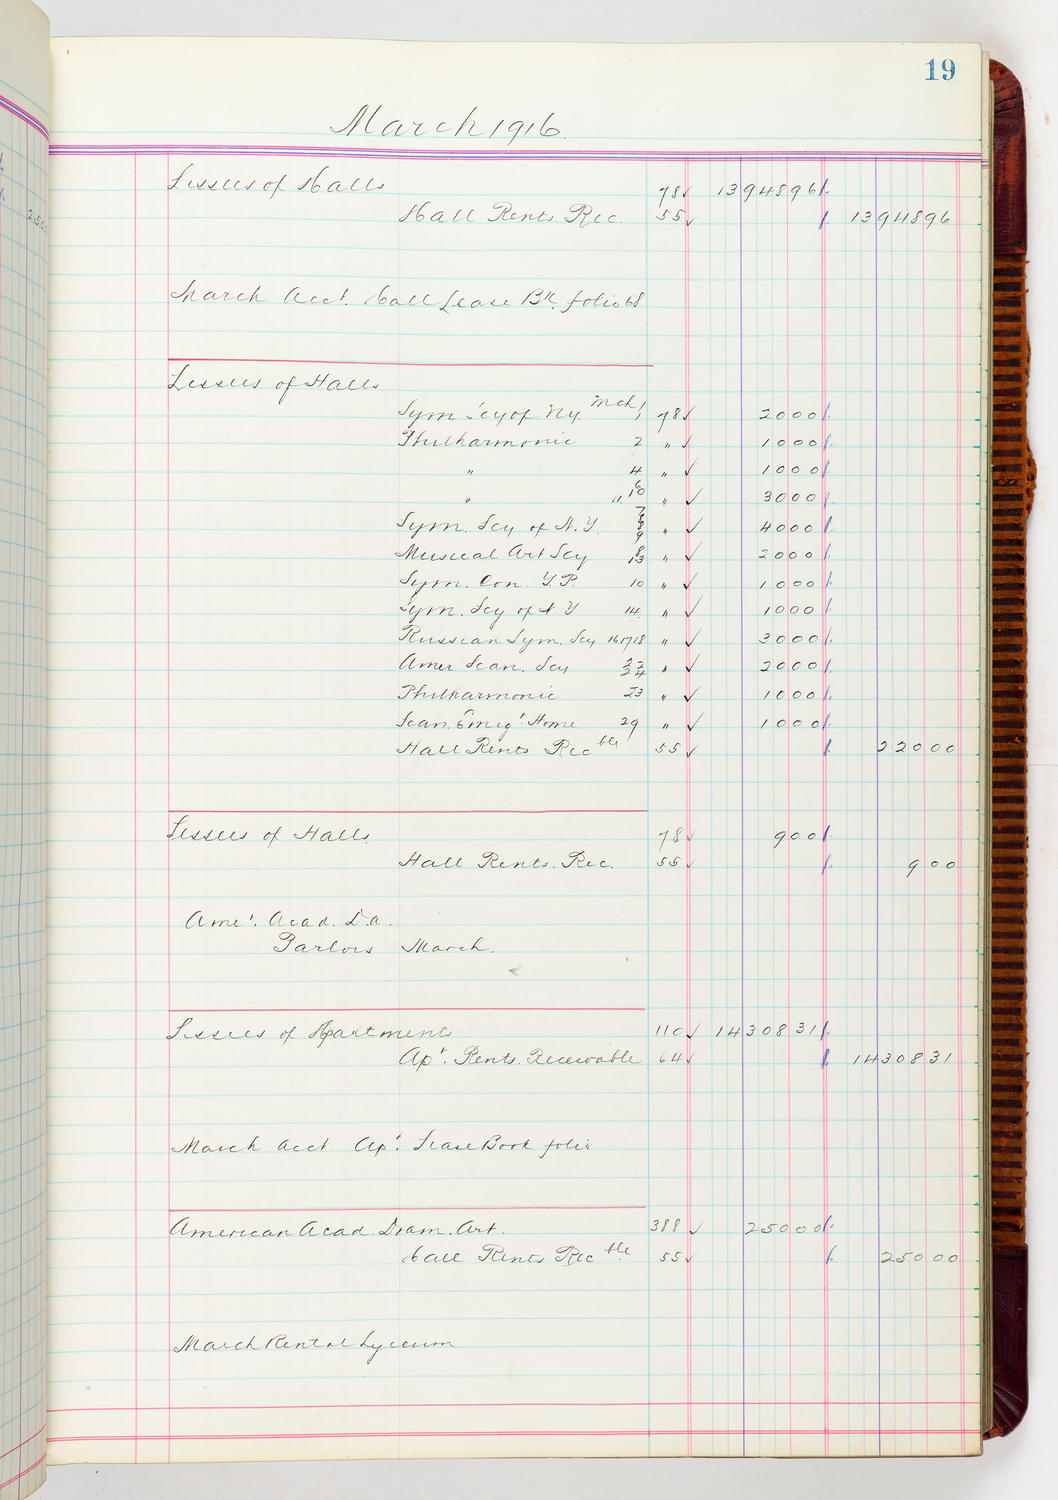 19
March 1916.
Lessees of Halls 78 ✓ 13948 96
Hall Rents Rec. 55 ✓ 13948 96
March Acct. Hall Lease Bk. folio 68
Lessees of Halls
Sym Scy of N.Y. Mch 1 78 ✓ 20 00
Philharmonic 2 " ✓ 10 00
" 4 " ✓ 10 00
" 6 10 11 " ✓ 30 00
Sym. Scy of N.Y. 9 " ✓ 40 00
Musical Art Scy 8 13 " ✓ 20 00
Sym. Con Y.P. 10 " ✓ 10 00
Sym. Scy of N Y 14. " ✓ 10 00
Russian Sym. Scy 16 17 18 " ✓ 30 00
Amer Scan. Scy 22 24 " ✓ 20 00
Philharmonic 23 " ✓ 10 00
Scan. Emig't Home 29 " ✓ 10 00
Hall Rents Rec ble 55 ✓ 220 00
Lessees of Halls. 78 ✓ 9 00
Hall Rents. Rec. 55 ✓ 9 00
Ame'. Acad. D.a.
Parlors March.
Lessees of Apartments 110 ✓ 14308 31
Ap'. Rents. Receivable 64 ✓ 14308 31
March acct Ap'. Lease Book folio
American Acad. Dram. Art. 388 ✓ 250 00
Hall Rents Rec ble 55 ✓ 250 00
March Rent of Lyceum